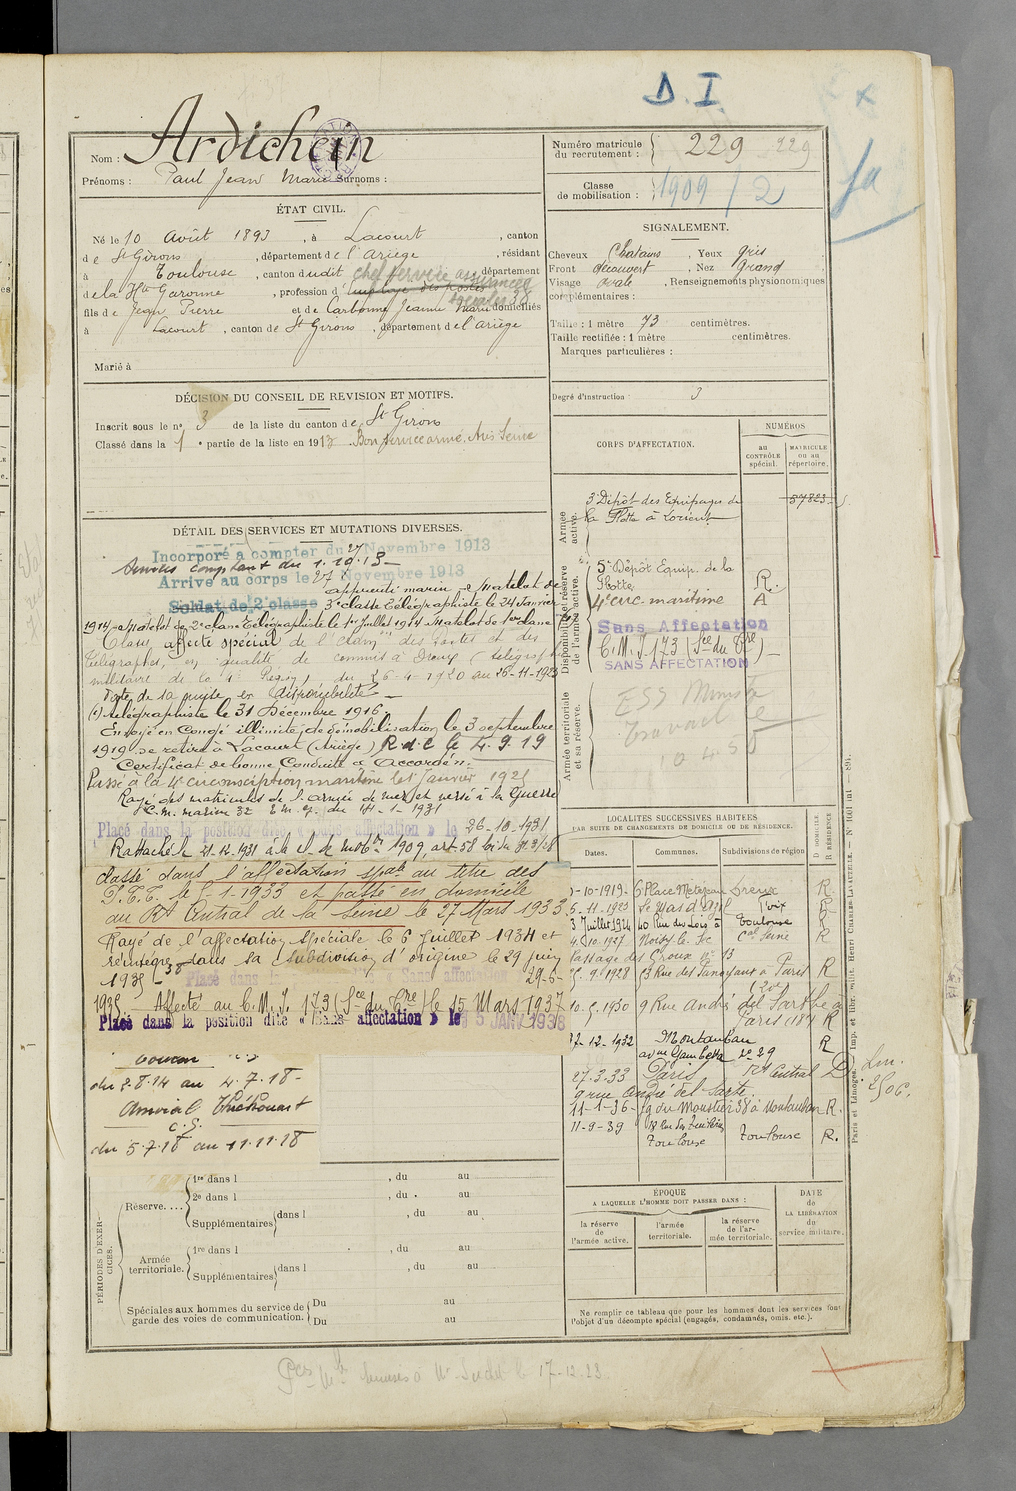 D. I.
Nom : Ardichein
Prénoms : Paul Jean Marie Surnoms :
Numéro matricule du recrutement : 229 229
Classe de mobilisation : 1909 / 2
ÉTAT CIVIL.
Né le 10 Août 1893, à Lacourt, canton
de St Girons, département de l'Ariège, résidant
à Toulouse, canton dudit, département
chef service assurances
de la Hte Garonne, profession d'employé des postes
sociales 38
fils de Jean Pierre et de Carbonne Jeanne Marie domiciliés
à Lacourt, canton de St Girons, département de l'Ariège
Marié à
SIGNALEMENT.
Cheveux Chatains, Yeux gris
Front découvert, Nez Grand
Visage ovale, Renseignements physionomiques
complémentaires :
Taille : 1 mètre 73 centimètres.
Taille rectifiée : 1 mètre centimètres.
Marques particulières :
Degré d'instruction : 3
DÉCISION DU CONSEIL DE REVISION ET MOTIFS.
Inscrit sous le n° 3 de la liste du canton de St Girons
Classé dans la 1e partie de la liste en 1913 Bon service armé. Avis Seine
CORPS D'AFFECTATION.
NUMÉROS
au CONTRÔLE spécial.
MATRICULE ou au répertoire.
Armée active.
3e Dépôt des Equipages de 57823
la Flotte à Lorient
Disponibilité et réserve de l'armée active.
5e Dépôt Equip. de la
Flotte R.
4e circ. maritime A
Sans Affectation
C.M.I 173 (Sce du Tre)
SANS AFFECTATION
Armée territoriale et sa réserve.
ESS Ministre
Travail
10455
DÉTAIL DES SERVICES ET MUTATIONS DIVERSES.
Incorporé à compter du 27 Novembre 1913
Services comptant du 1.10.13
Arrivé au corps le 27 Novembre 1913
apprenti marin Matelot de
Soldat de 2e classe 3e classe Télégraphiste le 24 Janvier
1914 Matelot de 2e classe Télégraphiste le 1er Juillet 1914 Matelot de 1ère classe
Classé affecté spécial de l'Etam des Postes et des
Télégraphes, en qualité de commis à Dreux (télégraphie
militaire de la 4e Région), du 26-4-1920 au 26-11-1923
Date de la passe en disponibilité
(1) télégraphiste le 31 Décembre 1916
Envoyé en Congé illimité de démobilisation le 3 septembre
1919 se retire à Lacourt (Ariège) R.d.C le 4.9.19
Certificat de bonne Conduite "Accordé".
Passé à la 4e circonscription maritime le 1er Janvier 1925
Rayé des matricules de l'armée de mer et versé à la Guerre
1931
Placé dans la position dite « sans affectation » le 26-10-1931
Rattaché le 21-12-1931 à la cl. de mobon 1909, art 58 loi du 31/3/28
Classé dans l'affectation spale au titre des
P.T.T. le 5-1-1933 et passé en domicile
au Rt Central de la Seine le 27 Mars 1933
Rayé de l'affectation Spéciale le 6 Juillet 1934 et
réintégré dans la subdivision d'origine le 29 juin
1935 Placé dans la position dite « Sans affectation 29-6-
1935 Affecté au C.M.I. 173 (Sce du Tre) le 15 Mars 1937
Placé dans la position dite « Sans affectation » le 15 JANV 1938
du 2.8.14 au 4.7.18-
Amiral
C.G.
du 5.7.18 au 11.11.18
LOCALITÉS SUCCESSIVES HABITÉES
PAR SUITE DE CHANGEMENTS DE DOMICILE OU DE RÉSIDENCE.
D DOMICILE. R RÉSIDENCE
Dates. Communes. Subdivisions de région
-10-1919- 6 Place Metezeau Dreux R.
5-11-1923 Le Mas d'Azil Foix R
3 Juillet 1924 40 Rue des Lois à Toulouse R
4.10.1927 Noisy le Sec Cal Seine R
Passage des Groux n° 13
9.1928 Rue des à Paris R
(20e)
10.5.1930 9 Rue André del Sarthe à
Paris (18e) R
7-12-1932 Montauban R
avue Gambetta n° 29
27.3.33 Paris Rt Central D
9 rue André del Sarte.
11-1-36- fg du Moustier 38 à Montauban R.
11-9-39 18 Rue des
Toulouse Toulouse R.
ÉPOQUE
A LAQUELLE L'HOMME DOIT PASSER DANS :
la réserve de l'armée active.
l'armée territoriale.
la réserve de l'armée territoriale.
DATE de LA LIBÉRATION du service militaire.
Ne remplir ce tableau que pour les hommes dont les services font
l'objet d'un décompte spécial (engagés, condamnés, omis, etc.).
PÉRIODES D'EXERCICES.
Réserve....
1re dans l , du au
2e dans l , du . au
Supplémentaires dans l , du au
Armée territoriale.
1re dans l , du au
Supplémentaires dans l , du au
Spéciales aux hommes du service de garde des voies de communication.
Du au
Du au
Paris et Limoges. — Imp. et libr. milit. Henri CHARLES-LAVAUZELLE. — N° 1601